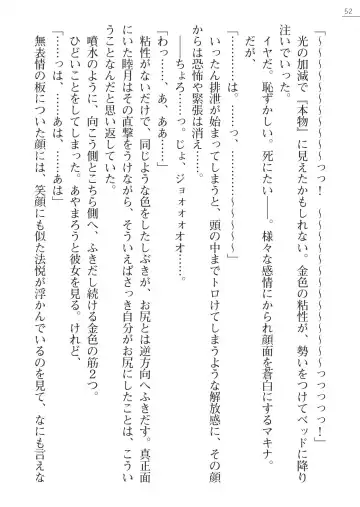 52
「～～～～～～～～～～～～っっ！　～～～～～～～～～～っっっっっ！」
　光の加減で『本物』に見えたかもしれない。金色の粘性が、勢いをつけてベッドに降り
注いでいった。
　イヤだ。恥ずかしい。死にたい――。様々な感情にかられ顔面を蒼白にするマキナ。
　だが、
「～～～～～～～～っは。　～～～っ、～～～～～～～～」
　いったん排泄が始まってしまうと、頭の中までトロけてしまうような解放感に、その顔
からは恐怖や緊張は消え……。
　――ちょろ……っ。じょ、ジョォォォオオ……。
「わっ……。あ、ああ……」
　粘性がないだけで、同じような色をしたしぶきが、お尻とは逆方向へふきだす。真正面
にいた睦月はその直撃をうけながら、そういえばさっき自分がお尻にしたことは、こうい
うことなんだと思い返していた。
　噴水のように、向こう側とこちら側へ、ふきだし続ける金色の筋２つ。
　ひどいことをしてしまった。あやまろうと彼女を見る。けれど、
「……っは、……あは。……あは」
　無表情の板についた顔には、笑顔にも似た法悦が浮かんでいるのを見て、なにも言えな